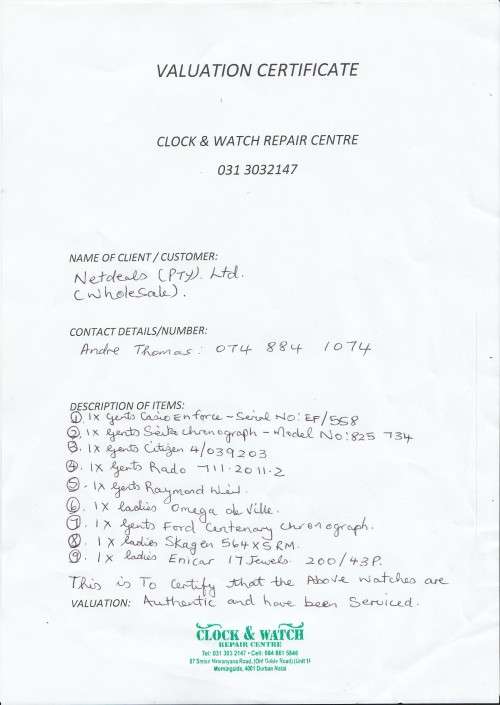 VALUATION CERTIFICATE
CLOCK & WATCH REPAIR CENTRE
031 3032147
NAME OF CLIENT / CUSTOMER:
Netdeals (PTY). Ltd.
(Wholesale).
CONTACT DETAILS/NUMBER:
Andre Thomas: 074 884 1074
DESCRIPTION OF ITEMS:
① 1x Gents Casio Enforce - Serial No: EF/558
②. 1x Gents Seiko chronograph - Model No: 825 734
③. 1x Gents Citizen 4/039203
④. 1x Gents Rado 711.2011.2
⑤. 1x Gents Raymond
⑥. 1x ladies Omega de Ville.
⑦. 1x Gents Ford Centenary chronograph.
⑧. 1x ladies Skagen 564XSRM.
⑨. 1x ladies Enicar 17 Jewels 200/43P.
This is To Certify that the Above watches are
VALUATION: Authentic and have been Serviced.
CLOCK & WATCH
REPAIR CENTRE
Tel: 031 303 2147 • Cell: 084 861 5646
Road, (Old Road) (Unit 1)
Morningside, 4001 Durban Natal